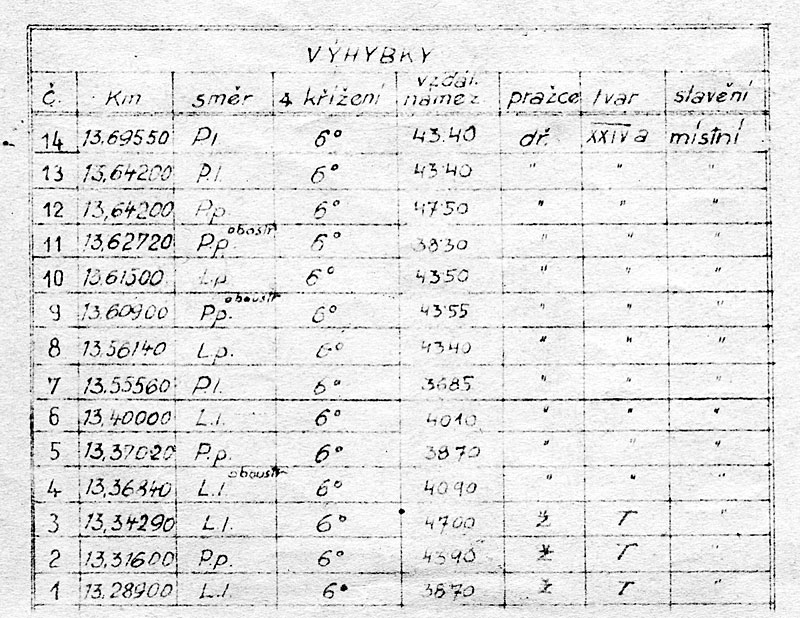 VÝHYBKY
č. Km směr ∡ křížení vzdál. námez pražce tvar stavění
14 13,69550 P.l. 6° 43.40 dř. XXIVa místní
13 13,64200 P.l. 6° 43.40 " " "
12 13,64200 P.p. 6° 47.50 " " "
11 13,62720 P.p. oboustr. 6° 38.30 " " "
10 13,61500 L.p. 6° 43.50 " " "
9 13,60900 P.p. oboustr. 6° 43.55 " " "
8 13,56140 L.p. 6° 43.40 " " "
7 13,55560 P.l. 6° 36.85 " " "
6 13,40000 L.l. 6° 40.10 " " "
5 13,37020 P.p. 6° 38.70 " " "
4 13,36840 L.l. oboustr. 6° 40.90 " " "
3 13,34290 L.l. 6° 47.00 ž T "
2 13,31600 P.p. 6° 43.90 ž T "
1 13,28900 L.l. 6° 38.70 ž T "